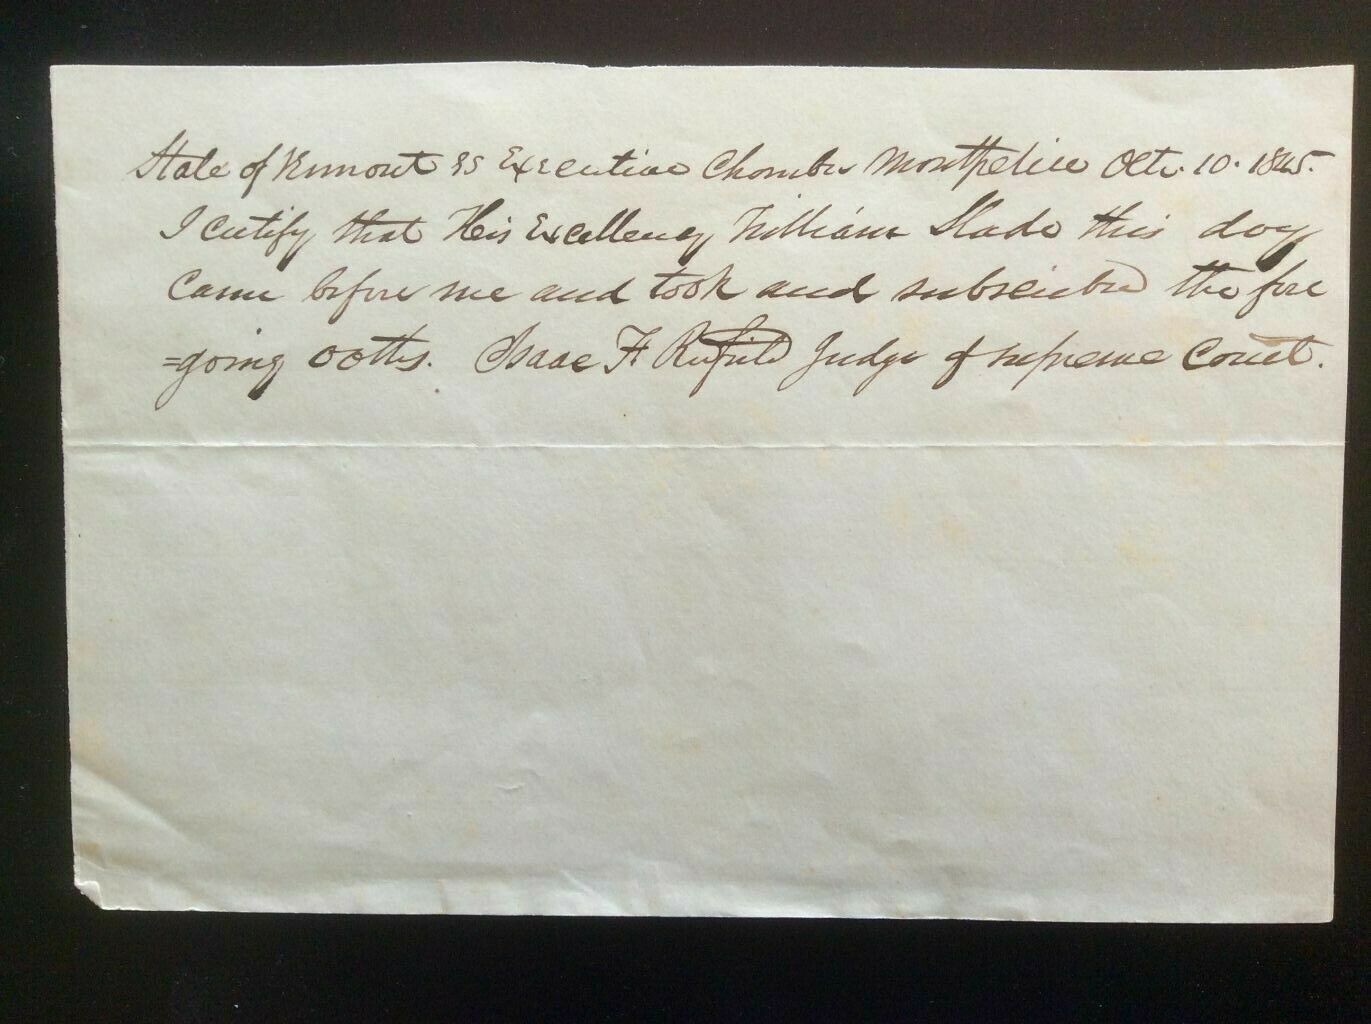 State of Vermont ss Executive Chamber Montpelier Octr. 10. 1845.
I certify that His Excellency William Slade this day
came before me and took and subscribed the fore
=going oaths. Isaac F Redfield Judge of supreme Court.